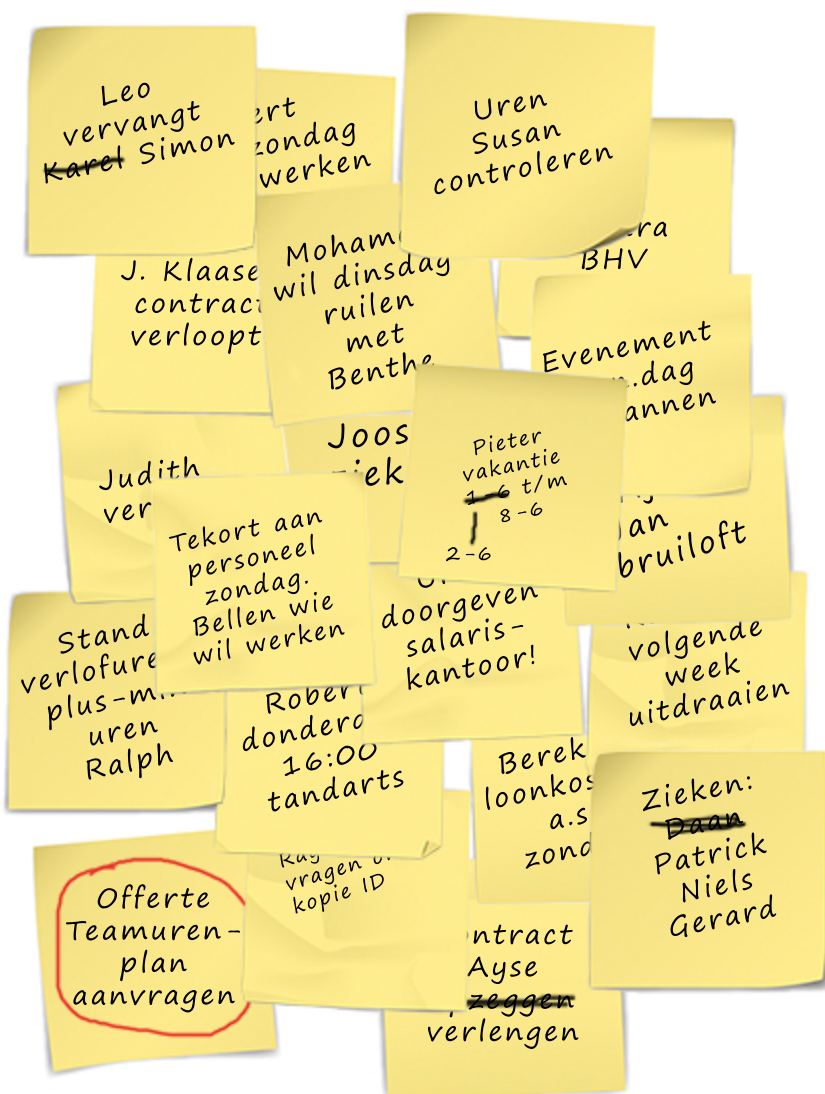 Leo
vervangt
Karel Simon
ert
zondag
werken
Uren
Susan
controleren
ra
BHV
J. Klaase
contract
verloopt
Moham
wil dinsdag
ruilen
met
Benthe
Evenement
dag
annen
Judith
ver
Joos
ziek
Pieter
vakantie
1-6 t/m
8-6
2-6
an
bruiloft
Tekort aan
personeel
zondag.
Bellen wie
wil werken
doorgeven
salaris-
kantoor!
volgende
week
uitdraaien
Stand
verlofure
plus-m
uren
Ralph
Robert
donderd
16:00
tandarts
Berek
loonkos
a.s
zond
Zieken:
Daan
Patrick
Niels
Gerard
Offerte
Teamuren-
plan
aanvragen
vragen
kopie ID
ntract
Ayse
zeggen
verlengen